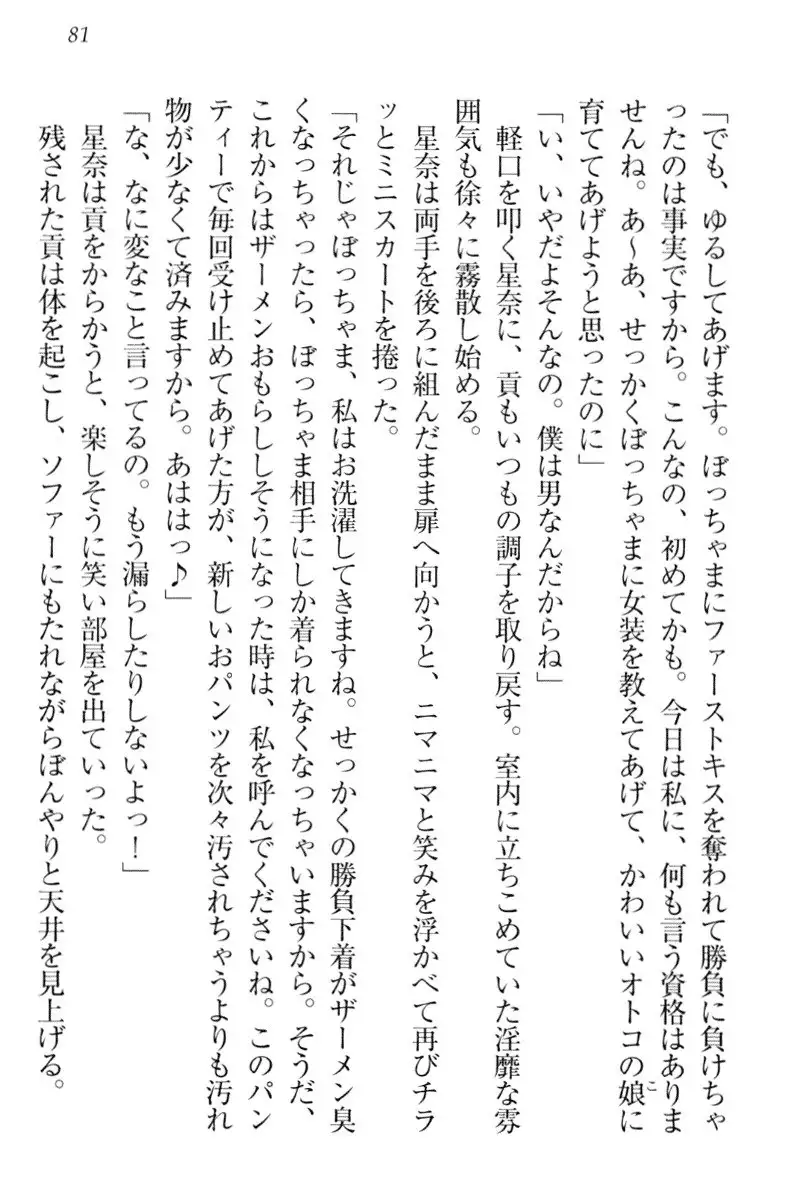 81
「でも、ゆるしてあげます。ぼっちゃまにファーストキスを奪われて勝負に負けちゃ
ったのは事実ですから。こんなの、初めてかも。今日は私に、何も言う資格はありま
せんね。あ～あ、せっかくぼっちゃまに女装を教えてあげて、かわいいオトコの娘に
育ててあげようと思ったのに」
「い、いやだよそんなの。僕は男なんだからね」
　軽口を叩く星奈に、貢もいつもの調子を取り戻す。室内に立ちこめていた淫靡な雰
囲気も徐々に霧散し始める。
　星奈は両手を後ろに組んだまま扉へ向かうと、ニマニマと笑みを浮かべて再びチラ
ッとミニスカートを捲った。
「それじゃぼっちゃま、私はお洗濯してきますね。せっかくの勝負下着がザーメン臭
くなっちゃったら、ぼっちゃま相手にしか着られなくなっちゃいますから。そうだ、
これからはザーメンおもらししそうになった時は、私を呼んでくださいね。このパン
ティーで毎回受け止めてあげた方が、新しいおパンツを次々汚されちゃうよりも汚れ
物が少なくて済みますから。あははっ♪」
「な、なに変なこと言ってるの。もう漏らしたりしないよっ！」
　星奈は貢をからかうと、楽しそうに笑い部屋を出ていった。
　残された貢は体を起こし、ソファーにもたれながらぼんやりと天井を見上げる。